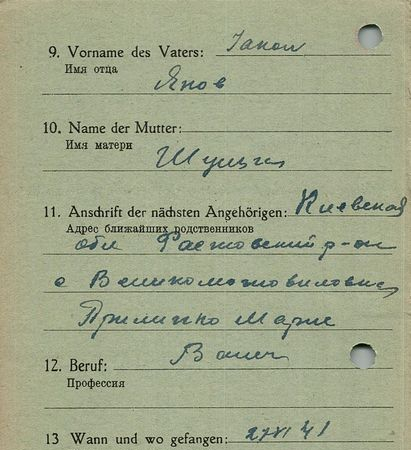 9. Vorname des Vaters: Jakob
Имя отца
Яков
10. Name der Mutter:
Имя матери
11. Anschrift der nächsten Angehörigen: Киевская
Адрес ближайших родственников
обл Фастовский р-он
с
Марие
12. Beruf:
Профессия
13 Wann und wo gefangen: 27 VI 41